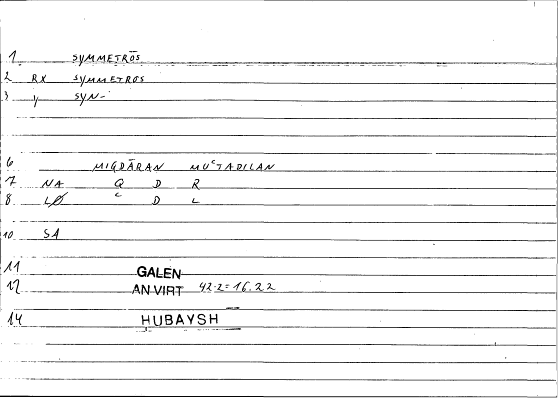 1 SYMMETRŌS
2 RX SYMMETROS
3 Y SYN-
6 MIQDĀRAN MUʿTADILAN
7 NA Q D R
8 LØ ʿ D L
10 SA
11 GALEN
12 AN VIRT 42.2=16.22
14 HUBAYSH